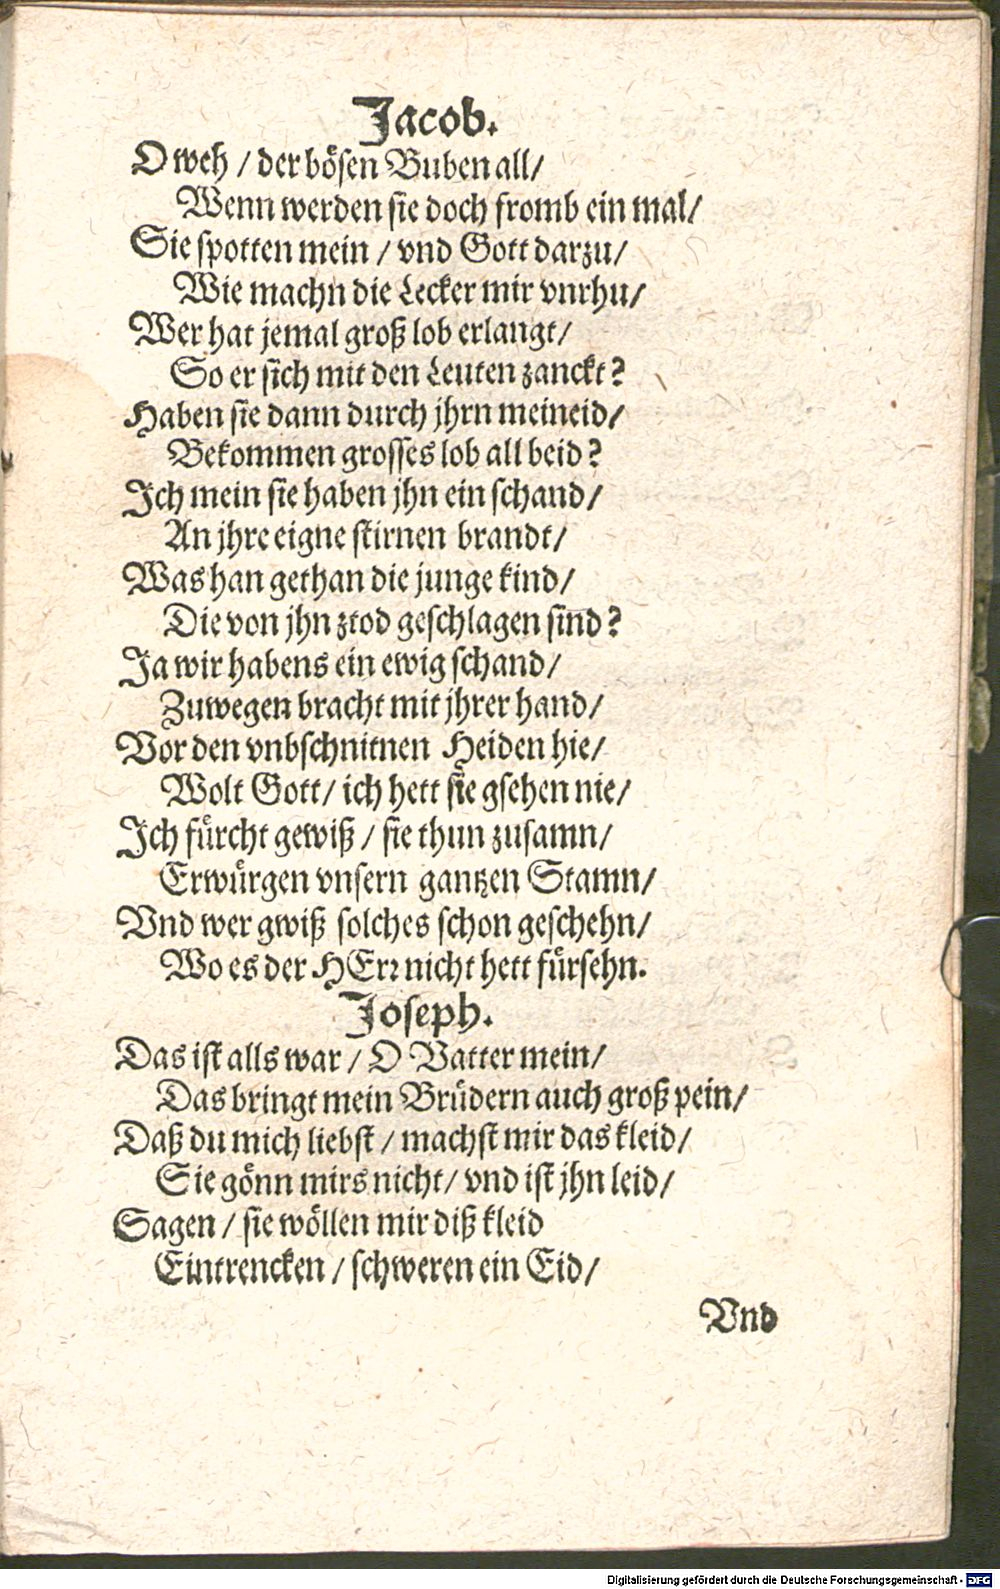 Jacob.
O weh / der bösen Buben all/
Wenn werden sie doch fromb ein mal/
Sie spotten mein / vnd Gott darzu/
Wie machn die Lecker mir vnrhu/
Wer hat jemal groß lob erlangt/
So er sich mit den Leuten zanckt?
Haben sie dann durch jhrn meineid/
Bekommen grosses lob all beid?
Ich mein sie haben jhn ein schand/
An jhre eigne stirnen brandt/
Was han gethan die junge kind/
Die von jhn ztod geschlagen sind?
Ja wir habens ein ewig schand/
Zuwegen bracht mit jhrer hand/
Vor den vnbschnitnen Heiden hie/
Wolt Gott/ ich hett sie gsehen nie/
Ich fürcht gewiß / sie thun zusamn/
Erwürgen vnsern gantzen Stamn/
Vnd wer gwiß solches schon geschehn/
Wo es der HErr nicht hett fürsehn.
Joseph.
Das ist alls war / O Vatter mein/
Das bringt mein Brüdern auch groß pein/
Daß du mich liebst / machst mir das kleid/
Sie gönn mirs nicht/ vnd ist jhn leid/
Sagen / sie wöllen mir diß kleid
Eintrencken / schweren ein Eid/
Vnd
Digitalisierung gefördert durch die Deutsche Forschungsgemeinschaft - DFG